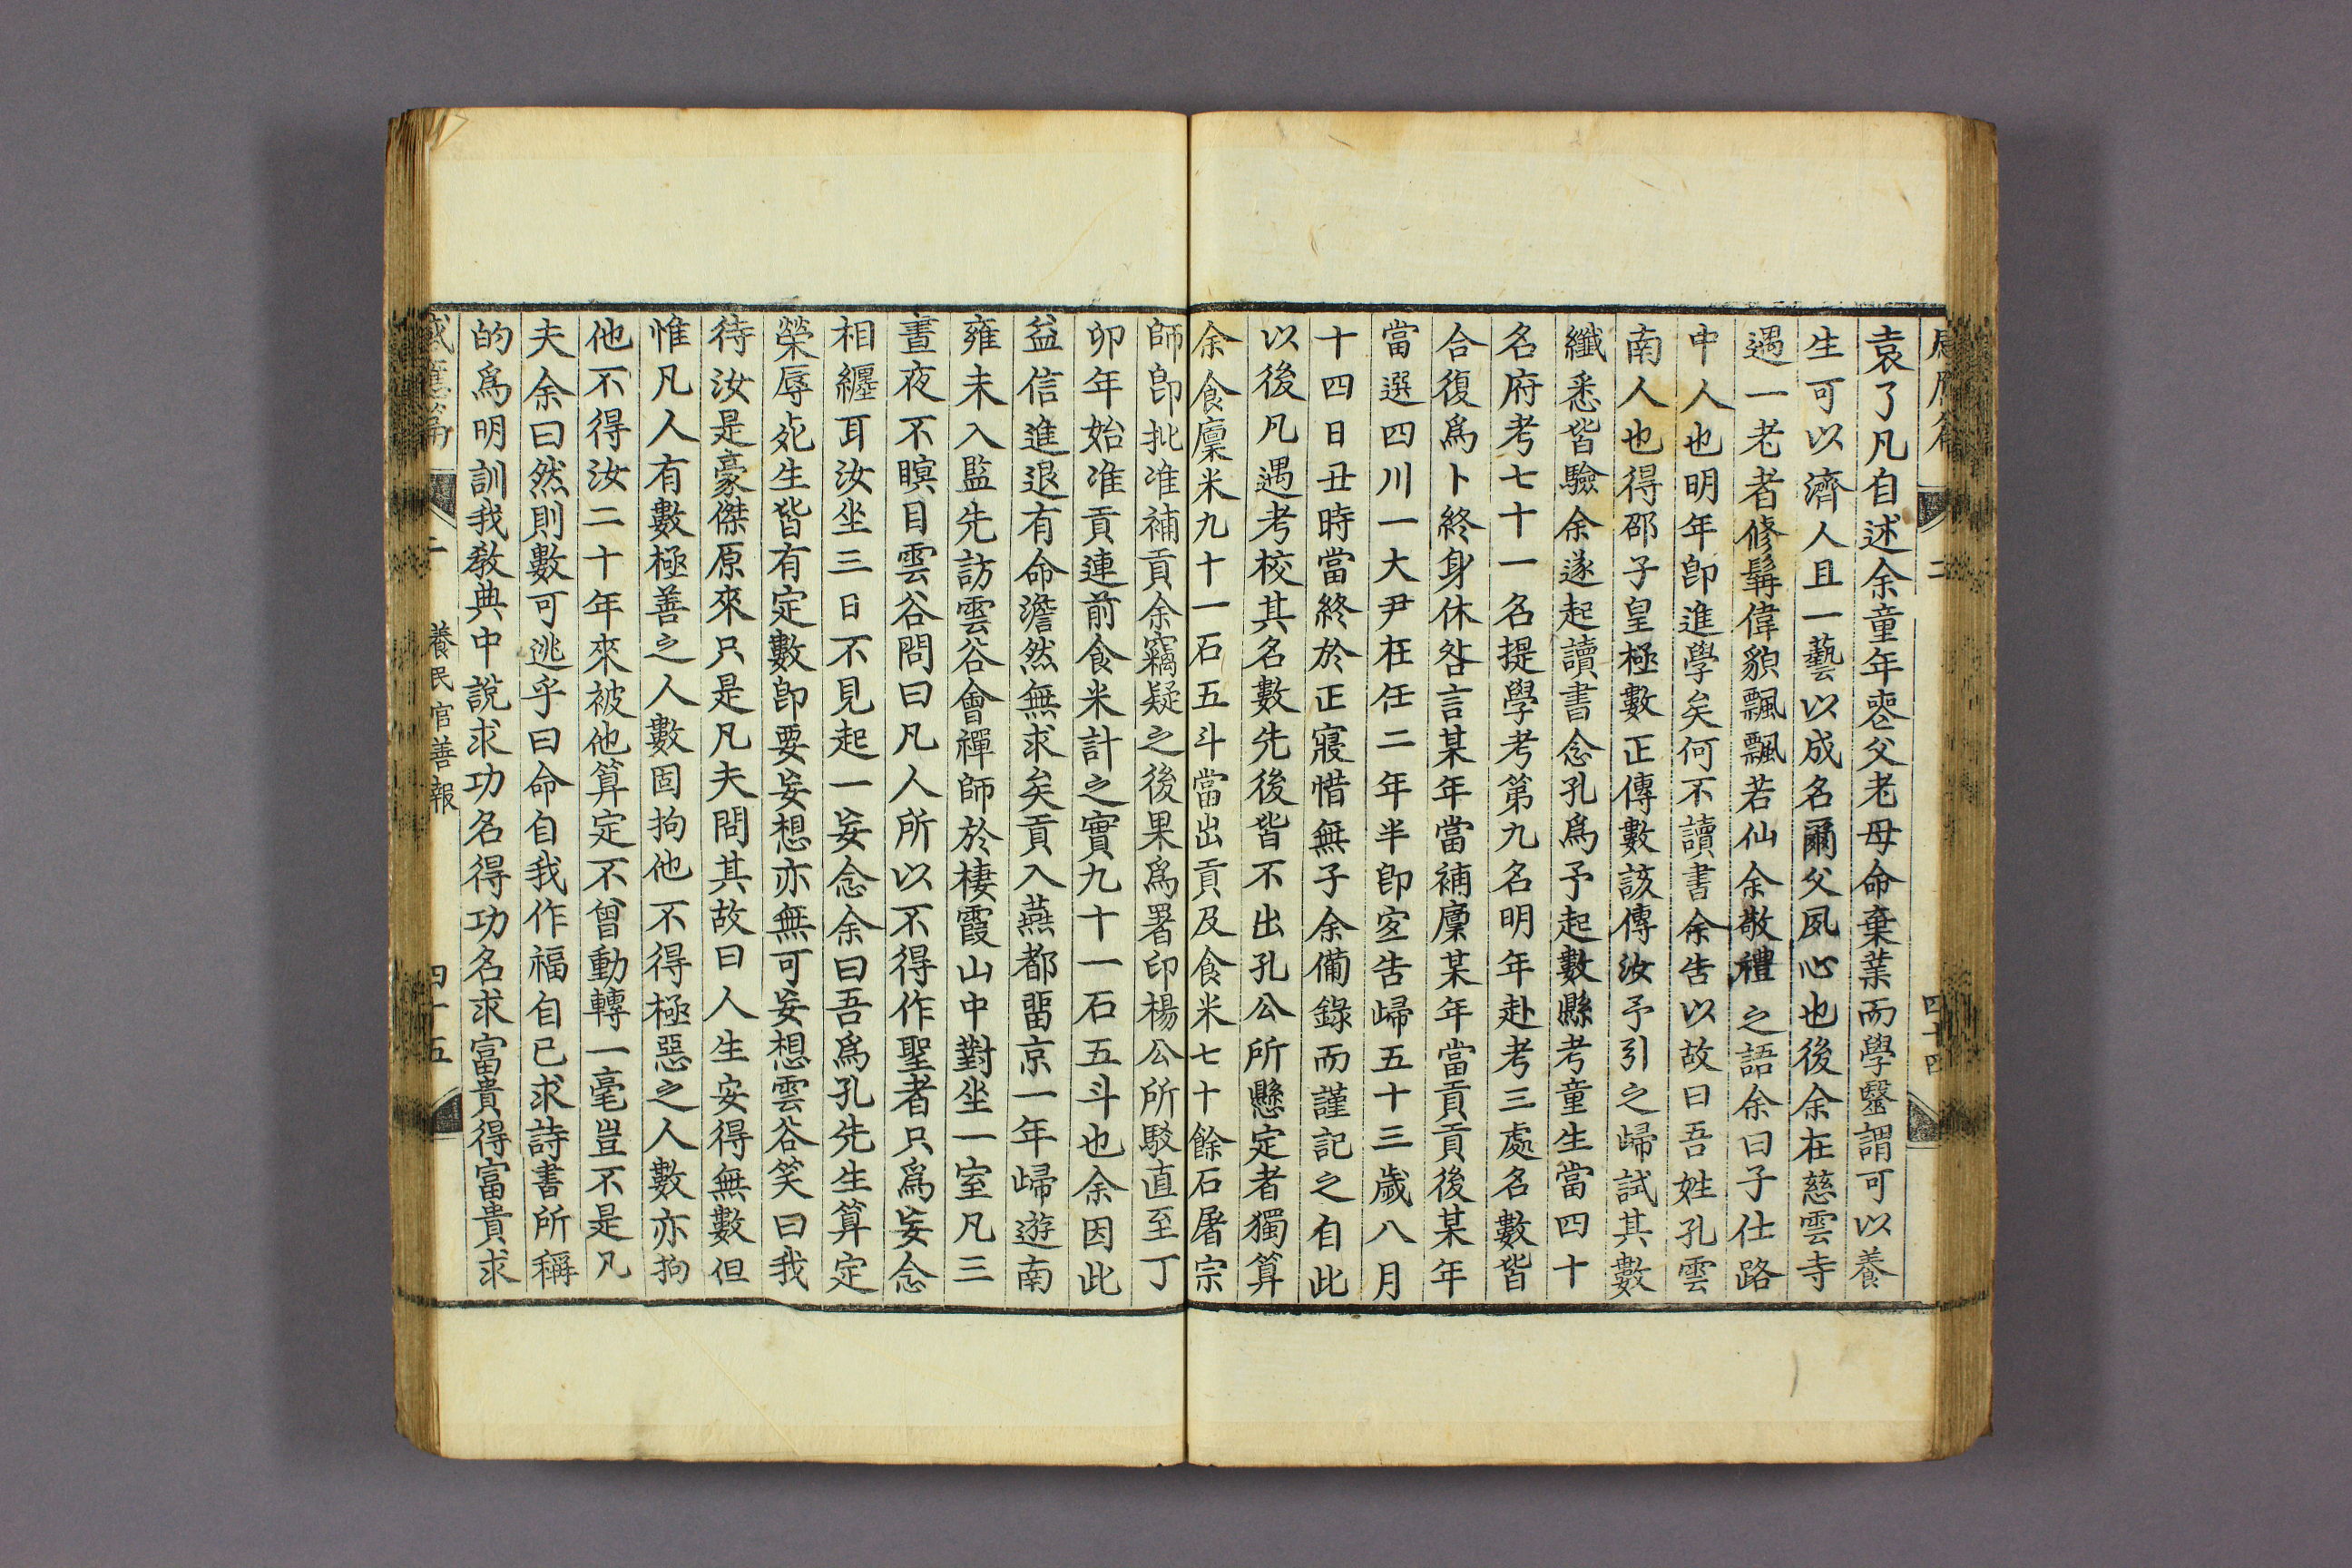 袁了凡自述余童年喪父老母命棄業而學毉謂可以養
生可以濟人且一藝以成名爾父夙心也後余在慈雲寺
遇一老者修髯偉貌飄飄若仙余敬禮之語余曰子仕路
中人也明年卽進學矣何不讀書余告以故曰吾姓孔雲
南人也得邵子皇極數正傳數該傳汝予引之歸試其數
纖悉皆驗余遂起讀書念孔爲予起數縣考童生當四十
名府考七十一名提學考第九名明年赴考三處名數皆
合復爲卜終身休咎言某年當補廩某年當貢貢後某年
當選四川一大尹在任二年半卽宜告歸五十三歲八月
十四日丑時當終於正寢惜無子余備錄而謹記之自此
以後凡遇考校其名數先後皆不出孔公所懸定者獨算
余食廩米九十一石五斗當出貢及食米七十餘石屠宗
師卽批准補貢余竊疑之後果爲署印楊公所駁直至丁
卯年始准貢連前食米計之實九十一石五斗也余因此
益信進退有命澹然無求矣貢入燕都留京一年歸遊南
雍未入監先訪雲谷會禪師於棲霞山中對坐一室凡三
晝夜不瞑目雲谷問曰凡人所以不得作聖者只爲妄念
相纏耳汝坐三日不見起一妄念余曰吾爲孔先生算定
榮辱死生皆有定數卽要妄想亦無可妄想雲谷笑曰我
待汝是豪傑原來只是凡夫問其故曰人生安得無數但
惟凡人有數極善之人數固拘他不得極惡之人數亦拘
他不得汝二十年來被他算定不曾動轉一毫豈不是凡
夫余曰然則數可逃乎曰命自我作福自己求詩書所稱
的爲明訓我教典中說求功名得功名求富貴得富貴求
感應篇 養民官善報 四十五